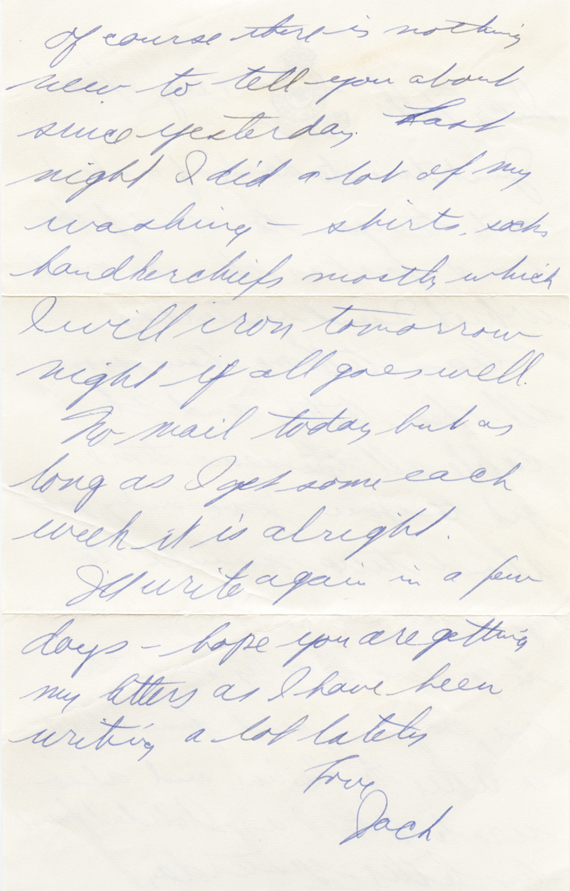 Of course there is nothing
new to tell you about
since yesterday. Last
night I did a lot of my
washing - shirts, socks
handkerchiefs mostly which
I will iron tomorrow
night if all goes well.
No mail today but as
long as I get some each
week it is alright.
I'll write again in a few
days - hope you are getting
my letters as I have been
writing a lot lately
Love
Jack